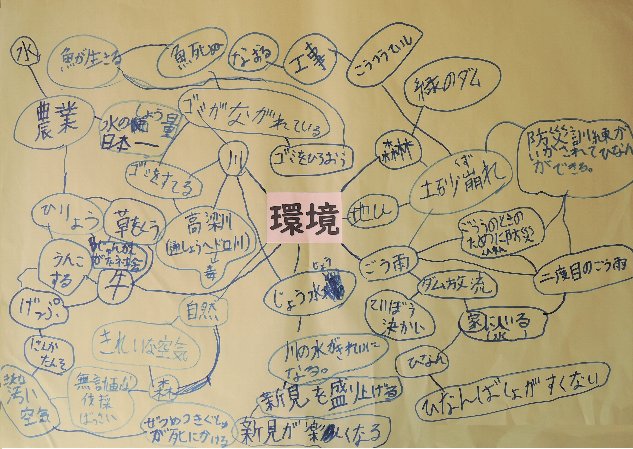 水
魚が生きる
魚死ぬ
なおる
工事
ごうつうてい
緑のダム
農業
水の
しょう
量
日本一
ゴミがながれている
ゴミをひろおう
川
森林
土砂崩れ
くず
防災訓練が
いかされてひなん
ができる。
ゴミをすてる
環境
地山
ひりょう
草をくう
高梁川
(通しょうヘドロ川)
毒
ごう雨
ごううのときの
ために防災
ダム放流
二度目のごう雨
うんこ
する
牛
じょう水
じょう
げっぷ
自然
ていぼう
決かい
家にいる
にさんか
たんそ
きれいな空気
川の水がきれいに
なる。
ひなん
ひなんばしょがすくない
汚い
空気
無計画な
伐採
ばっさい
森
ぜつめつきぐしゅ
が死にかける
新見を盛り上げる
新見が楽しくなる